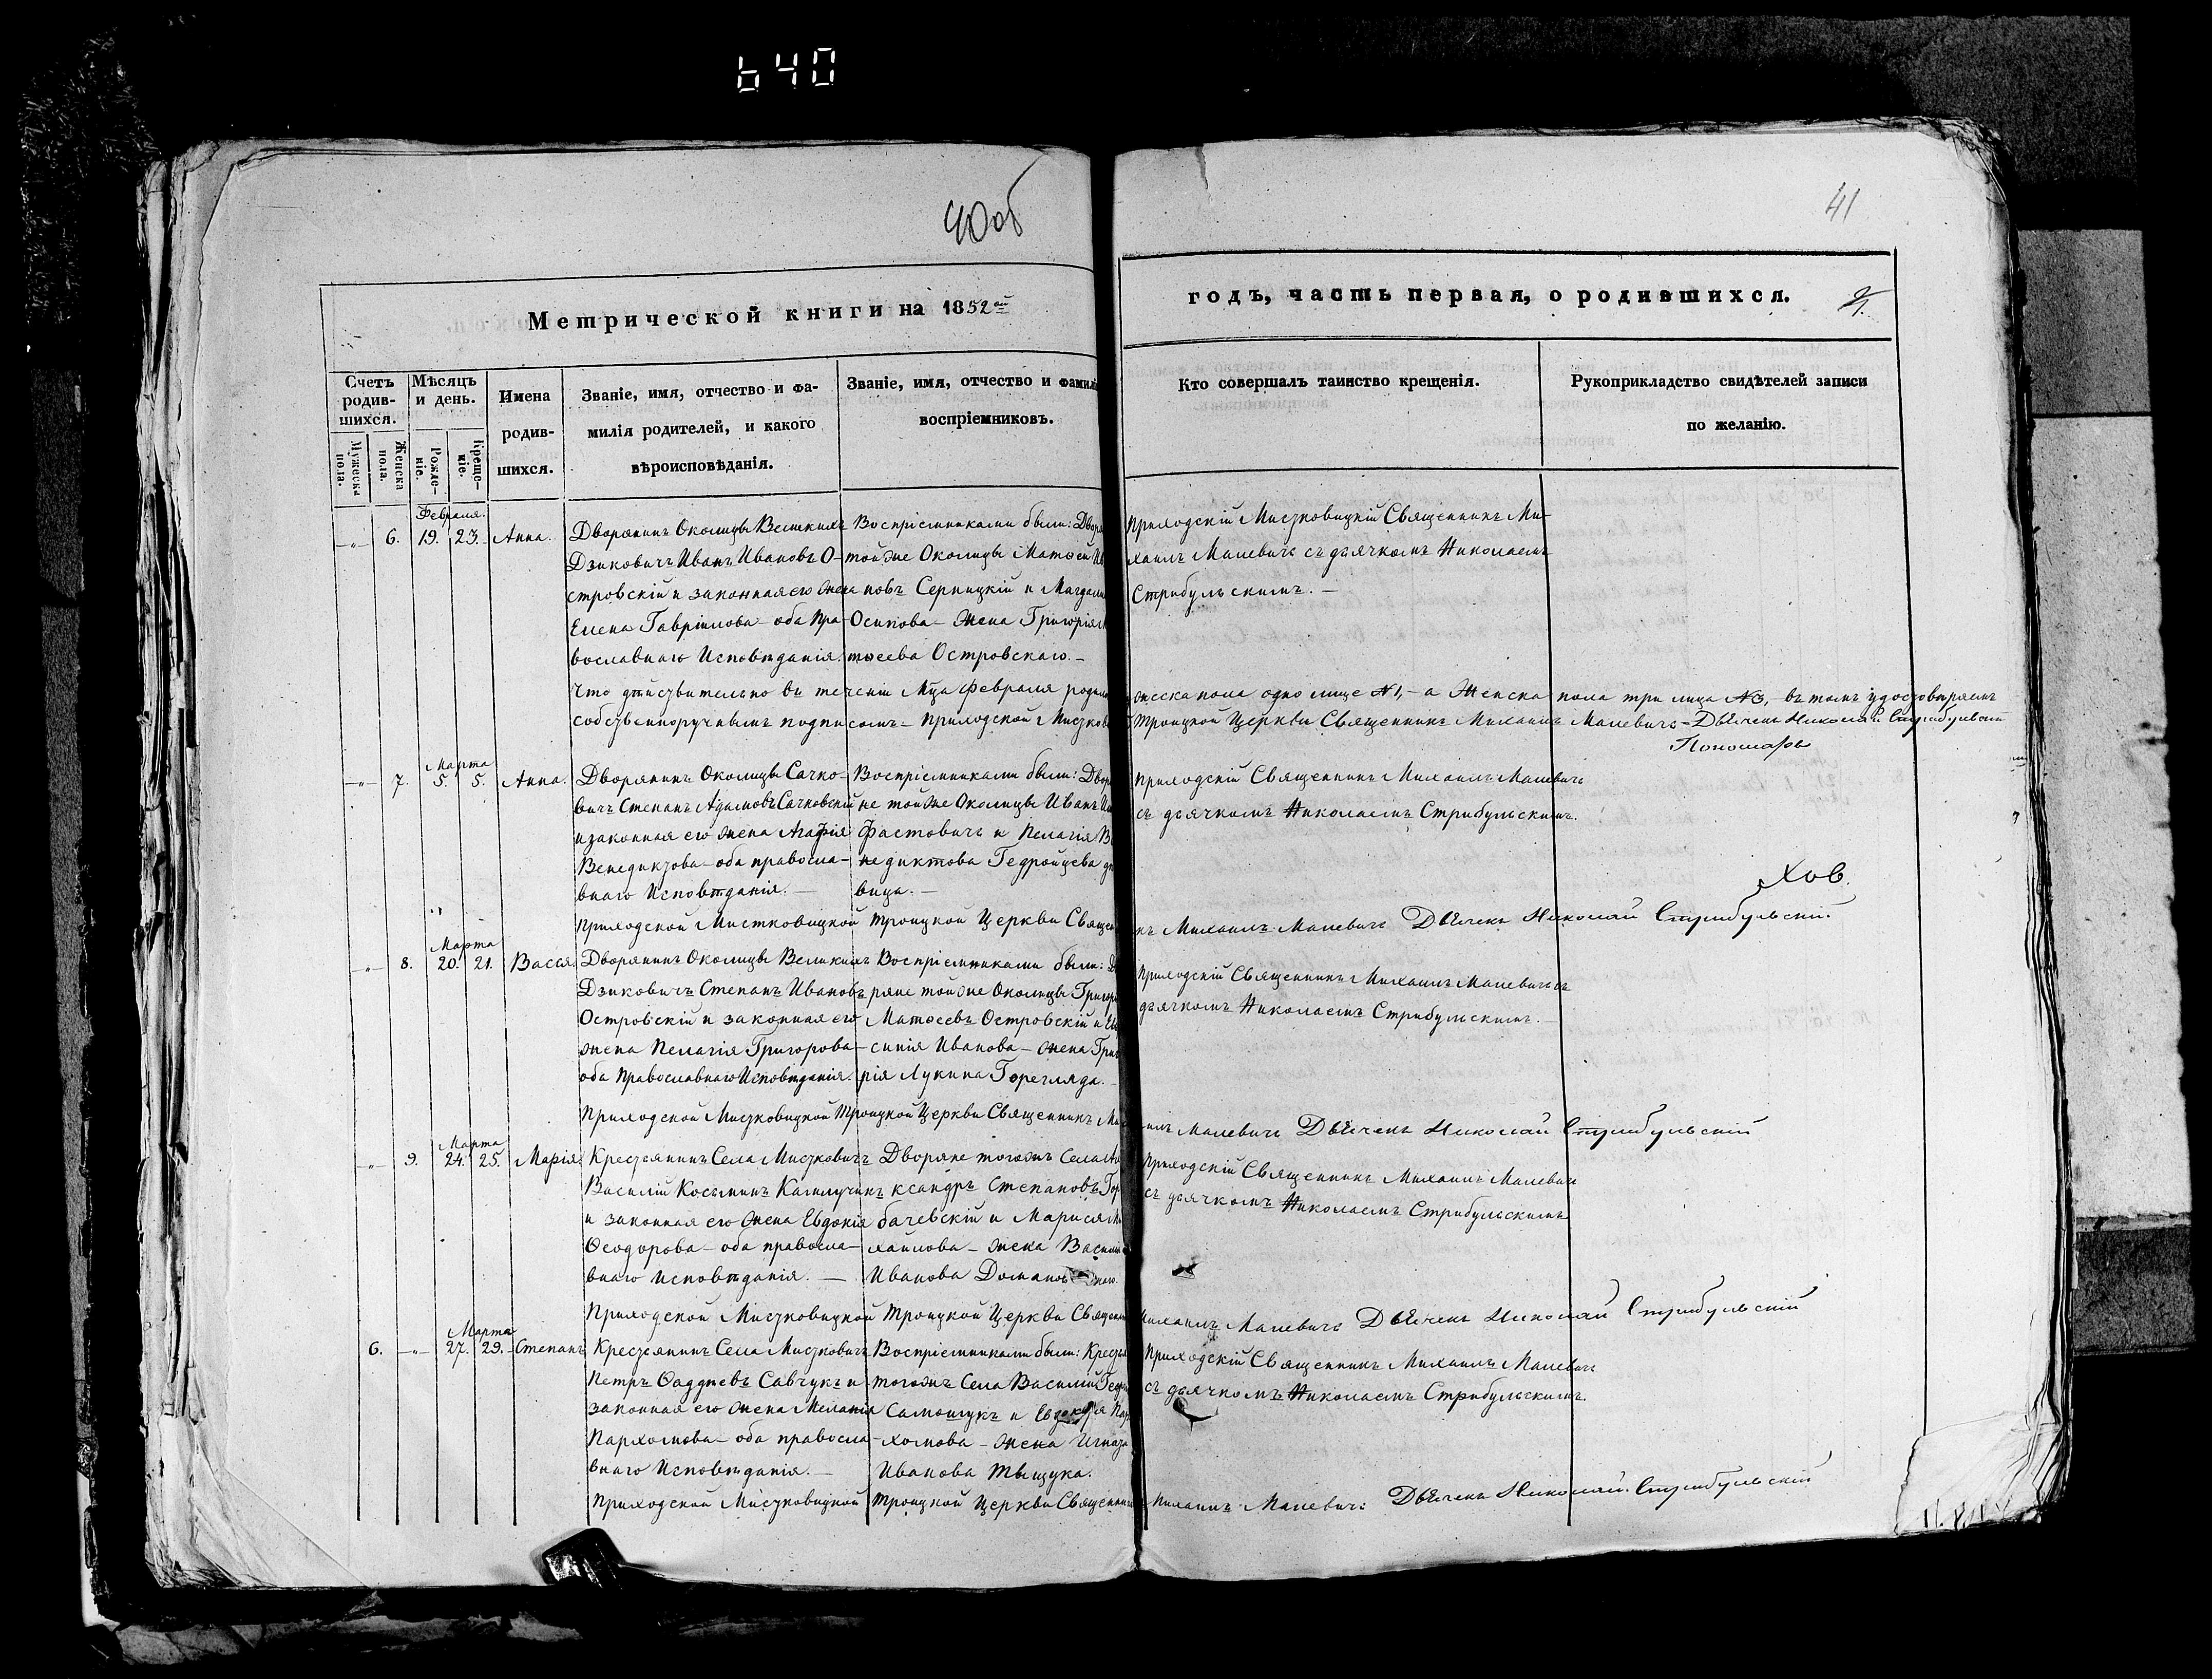 640
40об
41
Метрической книги на 1852ой
годъ, часть первая, о родившихся.
Счетъ родив-шихся.
Мѣсяцъ и день.
Имена родив-шихся.
Званіе, имя, отчество и фа-милія родителей, и какого вѣроисповѣданія.
Званіе, имя, отчество и фамилі воспріемниковъ.
Кто совершалъ таинство крещенія.
Рукоприкладство свидѣтелей записи по желанію.
Мужеска пола.
Женска пола.
Рожде-ніе.
Креще-ніе.
Февраля.
-„- 6. 19. 23. Анна.
Дворянинъ Околицы Великихъ
Дзиковичъ Иванъ Ивановъ О-
стровскій и законная его жена
Елена Гавріилова - оба Пра-
вославнаго Исповѣданія.
Воспріемниками были: Дворя
той же Околицы Матѳей Ив
новъ Серницкій и Магдали
Осипова - жена Григорія
тѳеева Островскаго. -
Приходскій Мистковицкій Священникъ Ми-
хаилъ Малевичъ съ дьячкомъ Николаемъ
Стрибульскимъ. -
Что дѣйствительно въ теченіи Мца февраля родило жеска пола одно лице №1, - а Женска пола три лица №3, - въ томъ удостовѣряемъ
собственноручнымъ подписомъ - Приходской Мистков Троицкой Церкви Священникъ Михаилъ Малевичъ - Дьячекъ Николай Стрибульскій
Пономарь
Марта
-„- 7. 5. 5. Анна.
Дворянинъ Околицы Сачко-
вичъ Степанъ Адамовъ Сачковскій
и законная его жена Агафія
Венедиктова - оба правосла-
внаго Исповѣданія. -
Воспріемниками были: Двор
не той же Околицы Иванъ
Фастовичъ и Пелагія В
недиктова Гедройцева дѣ
вица. -
Приходскій Священникъ Михаилъ Малевичъ
съ дьячкомъ Николаемъ Стрибульскимъ.
Хов.
Приходской Мистковицкой Троицкой Церкви Священ къ Михаилъ Малевичъ Дьячекъ Николай Стрибульскій
Марта
-„- 8. 20. 21. Васса.
Дворянинъ Околицы Великихъ
Дзиковичъ Степанъ Ивановъ
Островскій и законная его
жена Пелагія Григорова -
оба Православнаго Исповѣданія.
Воспріемниками были: Д
ряне той же Околицы Григорі
Матѳеевъ Островскій и Ев
синія Иванова - жена Григ
рія Лукина Горегляда. -
Приходскій Священникъ Михаилъ Малевичъ съ
дьячкомъ Николаемъ Стрибульскимъ. -
Приходской Мистковицкой Троицкой Церкви Священникъ Ми илъ Малевичъ Дьячекъ Николай Стрибульскій
Марта
-„- 9. 24. 25. Марія.
Крестьянинъ Села Мистковичъ
Василій Косьминъ
и законная его жена Евдокія
Ѳеодорова - оба правосла-
внаго исповѣданія. -
Дворяне тогожъ Села Ал
ксандръ Степановъ Гор
бачевскій и Марися Ми
хайлова - жена Васили
Иванова
Приходскій Священникъ Михаилъ Малевичъ
съ дьячкомъ Николаемъ Стрибульскимъ
Приходской Мистковицкой Троицкой Церкви Священ Михаилъ Малевичъ Дьячекъ Николай Стрибульскій
Марта
6. -„- 27. 29. Степанъ
Крестьянинъ Села Мистковичъ
Петръ Ѳаддѣевъ Савчукъ и
законная его жена Меланія
Пархомова - оба правосла-
внаго Исповѣданія. -
Воспріемниками были: Кресть
тогожъ Села Василій
и Евдокія Пар
хомова - жена Игната
Иванова
Приходскій Священникъ Михаилъ Малевичъ
съ дьячкомъ Николаемъ Стрибульскимъ.
Приходской Мистковицкой Троицкой Церкви Священник Михаилъ Малевичъ Дьячекъ Николай Стрибульскій